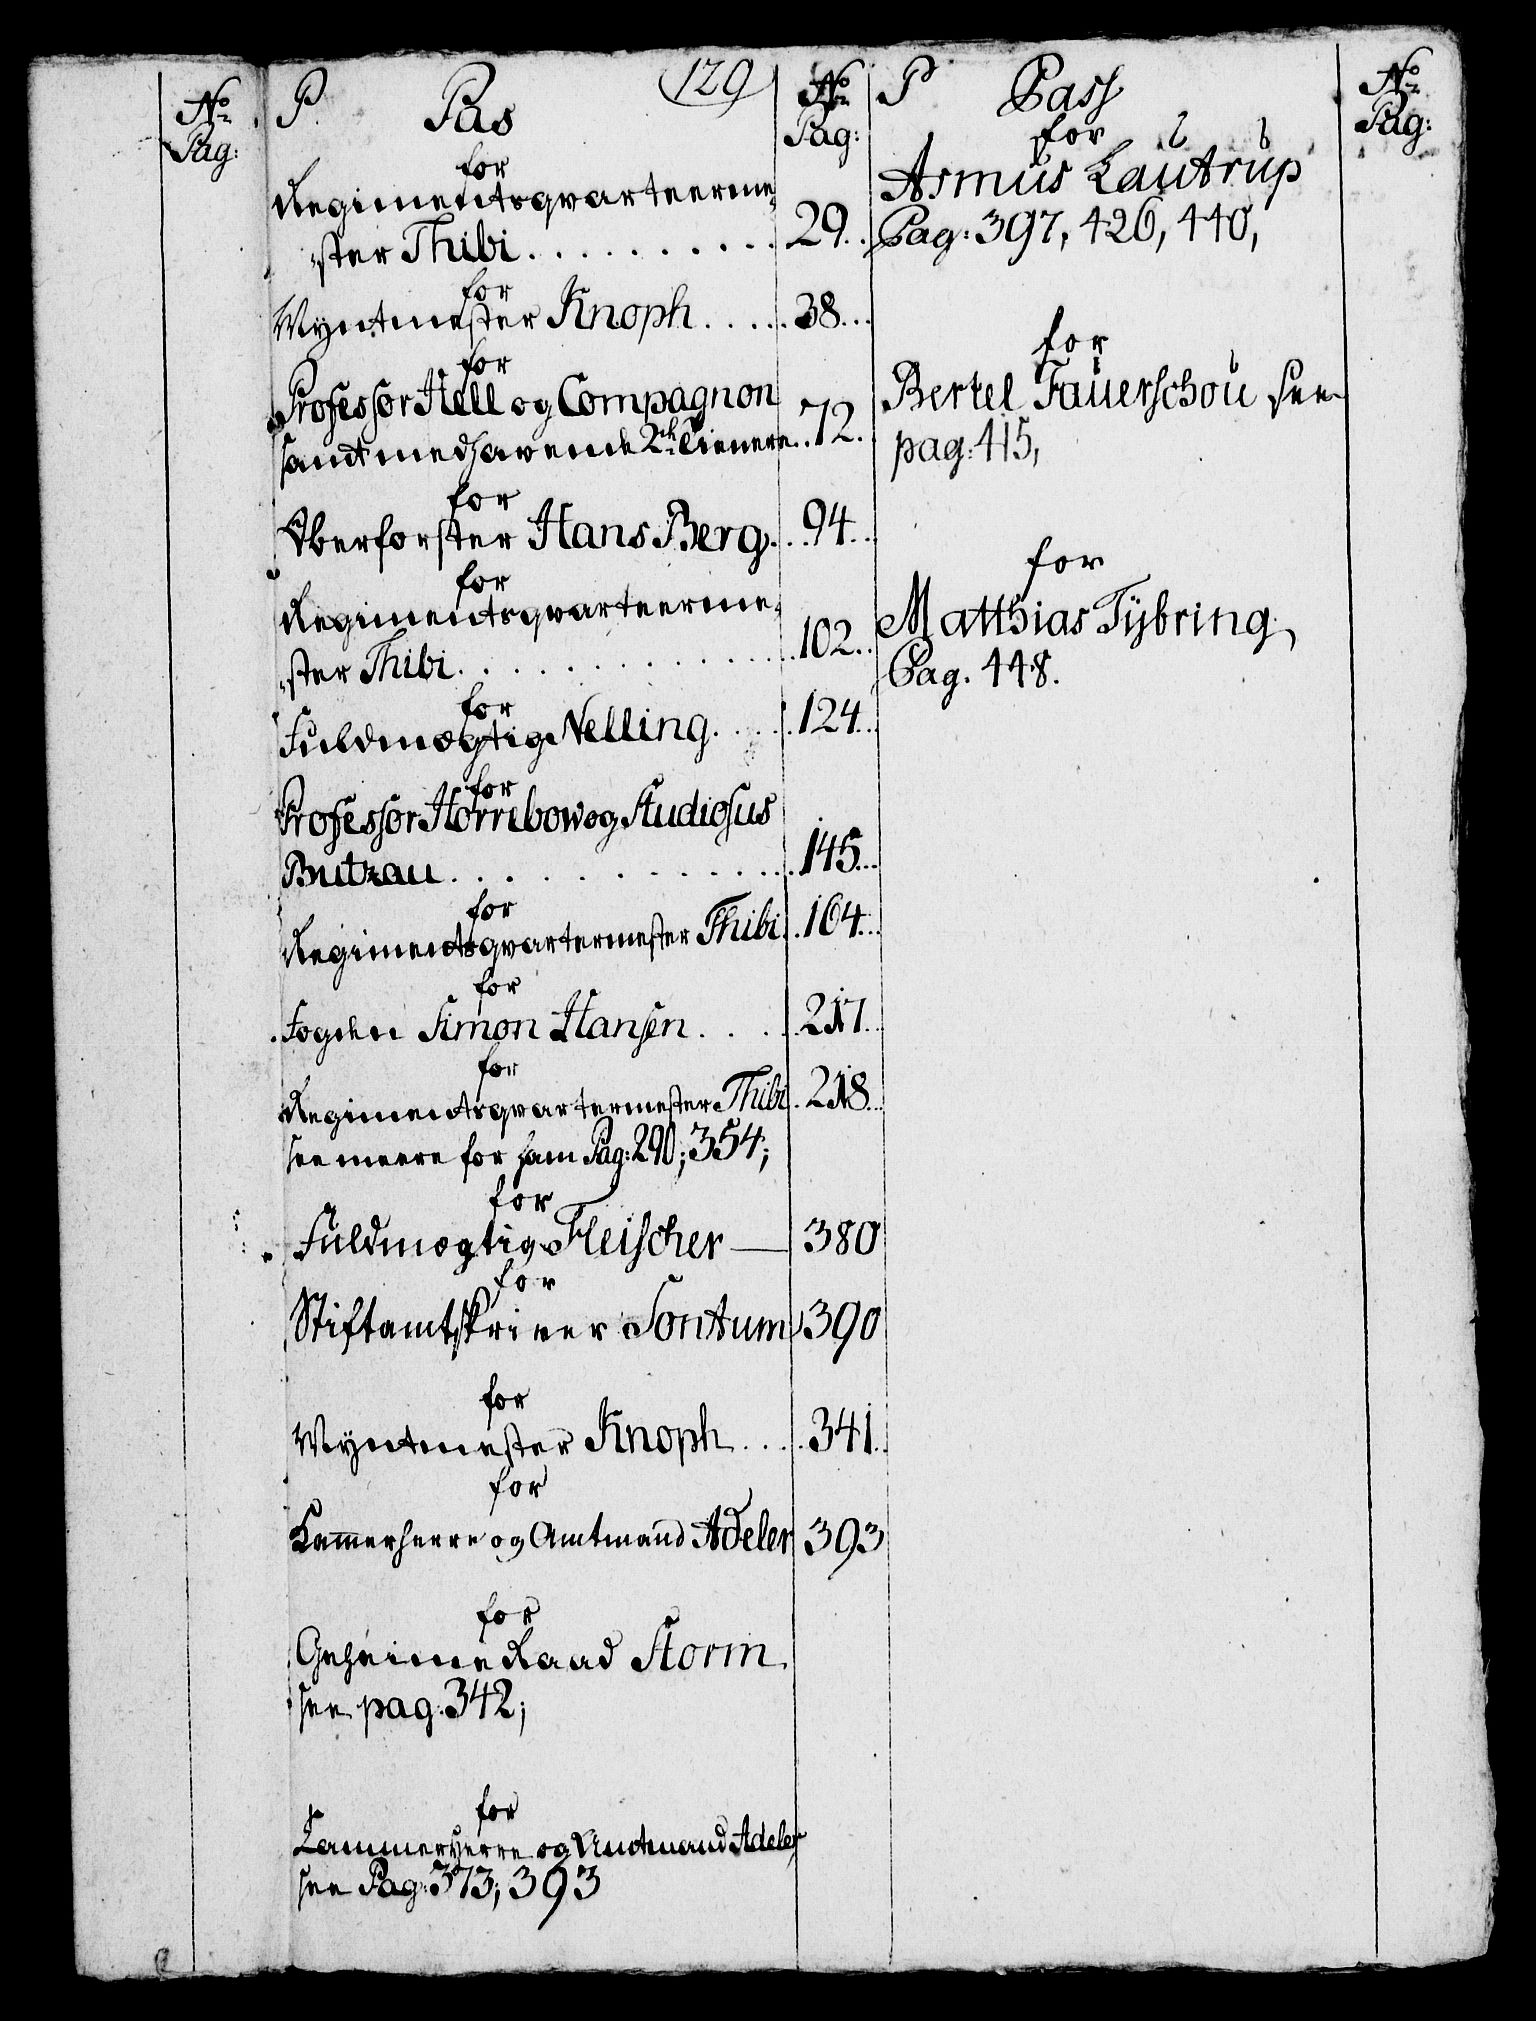 129
No
Pag:
P. Pas
No
Pag:
for
Regimentsqvarteerme-
-ster Thibi . . . . . . . . . . 29.
for
Myntmester Knoph . . . . . 38.
for
Professor Hell og Compagnon
samt medhavende 2de Tienere . . 72.
for
Oberforster Hans Berg . . 94.
for
Regimentsqvarteerme-
-ster Thibi . . . . . . . . . . 102.
for
Fuldmægtig Nelling . . . . 124.
for
Professor Horrebow og Studiosus
Butzau . . . . . . . . . . 145.
for
Regimentsqvartermester Thibi . . 164.
for
Fogden Simon Hansen . . . . 217.
for
Regimentsqvartermester Thibi . 218.
see meere for ham Pag: 290; 354;
for
Fuldmægtig Fleischer — 380
for
Stiftamtskriver Sontum 390
for
Myntmester Knoph . . . . 341.
for
Kam̅erherre og Amtmand Adeler 393
for
Geheime Raad Storm
see pag: 342;
for
Cammerherre og Amtmand Adeler
see Pag: 373; 393
P Pass
No
Pag:
for
Asmus Lautrup
Pag: 397, 426, 440,
for
Bertel Fauerschou see
pag: 415,
for
Matthias Tÿbring,
Pag. 448.